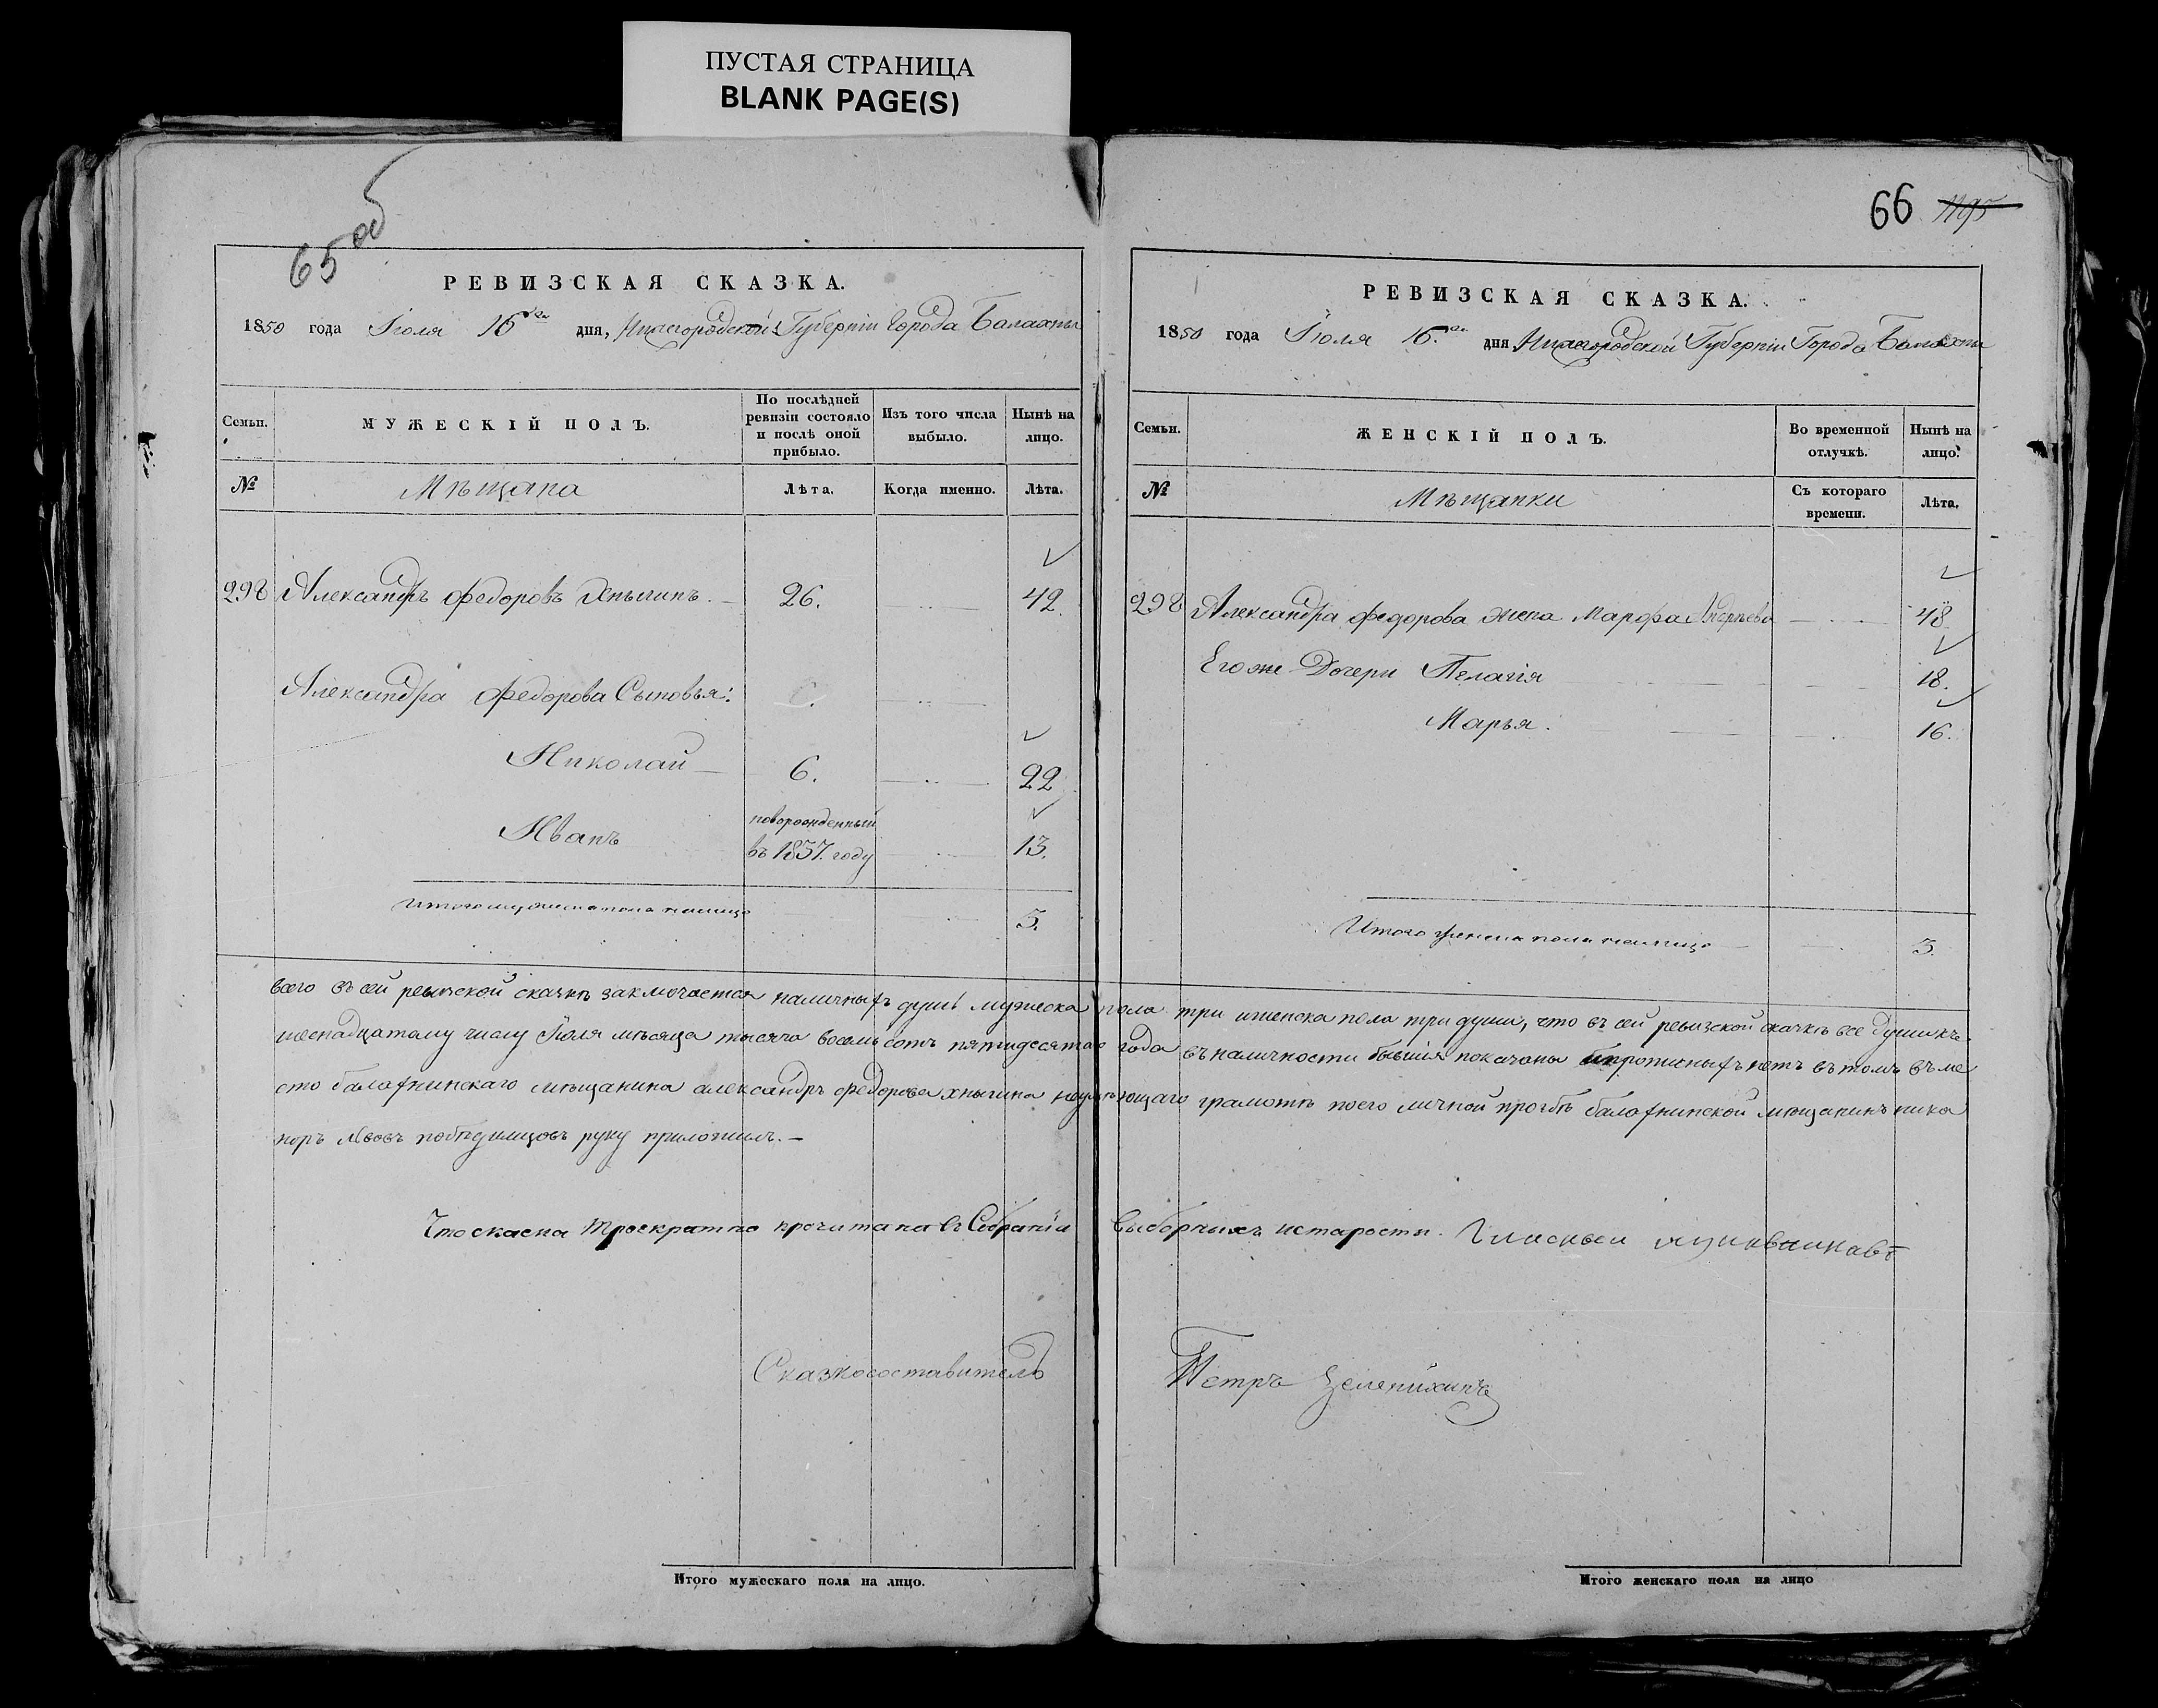 ПУСТАЯ СТРАНИЦА
BLANK PAGE(S)
65 об
РЕВИЗСКАЯ СКАЗКА.
1850 года Іюля 16го дня, Нижегородской Губерніи Города Балахны
Семьи. МУЖЕСКІЙ ПОЛЪ. По послѣдней ревизіи состояло и послѣ оной прибыло. Изъ того числа выбыло. Нынѣ на лицо.
№ Мѣщана Лѣта. Когда именно. Лѣта.
298 Александръ Федоровъ Хныгинъ 26. 42.
Александра Федорова Сыновья:
Николай 6. 22
Иванъ новорожденный въ 1837. году 13.
Итого мужеска пола налицо 3.
66 1195
РЕВИЗСКАЯ СКАЗКА.
1850 года Іюля 16го дня Нижегородской Губерніи Города Балахны
Семьи. ЖЕНСКІЙ ПОЛЪ. Во временной отлучкѣ. Нынѣ на лицо.
№ Мѣщанки Съ котораго времени. Лѣта.
298 Александра Федорова жена Марфа Андреева 48
Его же Дочери Пелагія 18.
Марья. 16.
Итого женска пола налицо 3.
всего въ сей ревизской сказкѣ заключается наличныхъ душъ мужеска пола три иженска пола три души, что въ сей ревизской сказкѣ все души къ
шеснадцатому числу Іюля мѣсяца тысяча восемь сотъ пятидесятаго года въ наличности бывшія показаны и прописныхъ нетъ въ томъ въ ме
сто балахнинскаго мѣщанина александръ федорова хныгина неумѣющаго грамотѣ по его личной прозбѣ балахнинской мѣщанинъ ника
норъ Львовъ побѣдимцовъ руку приложилъ.
Что скаска троекратно прочитана въ Собраніи выборныхъ и старости. Гласный
Сказкосоставитель Петръ Зеленихинъ
Итого мужескаго пола на лицо.
Итого женскаго пола на лицо